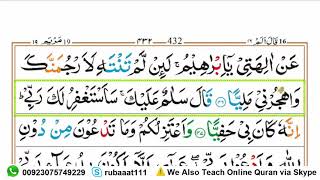 قال الم ١٦ ٤٣٢ 432 مريم ١٩
عَنْ اٰلِهَتِيْ يٰٓاِبْرٰهِيْمُ ۚ لَىِٕنْ لَّمْ تَنْتَهِ لَاَرْجُمَنَّكَ
وَاهْجُرْنِيْ مَلِيًّا ﴿٤٦﴾ قَالَ سَلٰمٌ عَلَيْكَ ۚ سَاَسْتَغْفِرُ لَكَ رَبِّيْ ؕ
اِنَّهٗ كَانَ بِيْ حَفِيًّا ﴿٤٧﴾ وَاَعْتَزِلُكُمْ وَمَا تَدْعُوْنَ مِنْ دُوْنِ
00923075749229 rubaaat111 ⚠ We Also Teach Online Quran via Skype